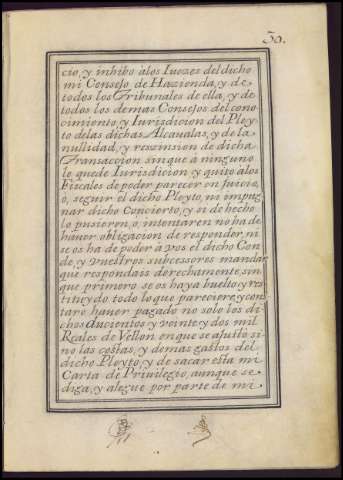 30.
cio, y inhibo àlos Iuezes del dicho
mi Consejo de Hazienda, y de
todos los Tribunales de ella, y de
todos los demas Consejos del cono
cimiento, y Iurisdicion del Pley
to delas dichas Alcaualas, y de la
nullidad, y rescission de dicha
Transaccion sinque à ninguno
le quede Iurisdicion y quito àlos
Fiscales de poder parecer en Juicio,
ò, seguir el dicho Pleyto, ni impug
nar dicho Concierto, y si de hecho
lo pusieren, o intentaren no ha de
hauer obligacion de responder, ni
se os ha de poder à vos el dicho Con
de, y vuestros subcessores mandar
que respondais derechamente, sin
que primero se os haya buelto, y res
tituydo todo lo que pareciere, y cons
tare hauer pagado no solo los di
chos ducientos y veinte y dos mil
Reales de Vellon en que se ajustò si
no las costas, y demas gastos del
dicho Pleyto, y de sacar esta mi
Carta de Priuilegio, aunque se
diga, y alegue por parte de mi